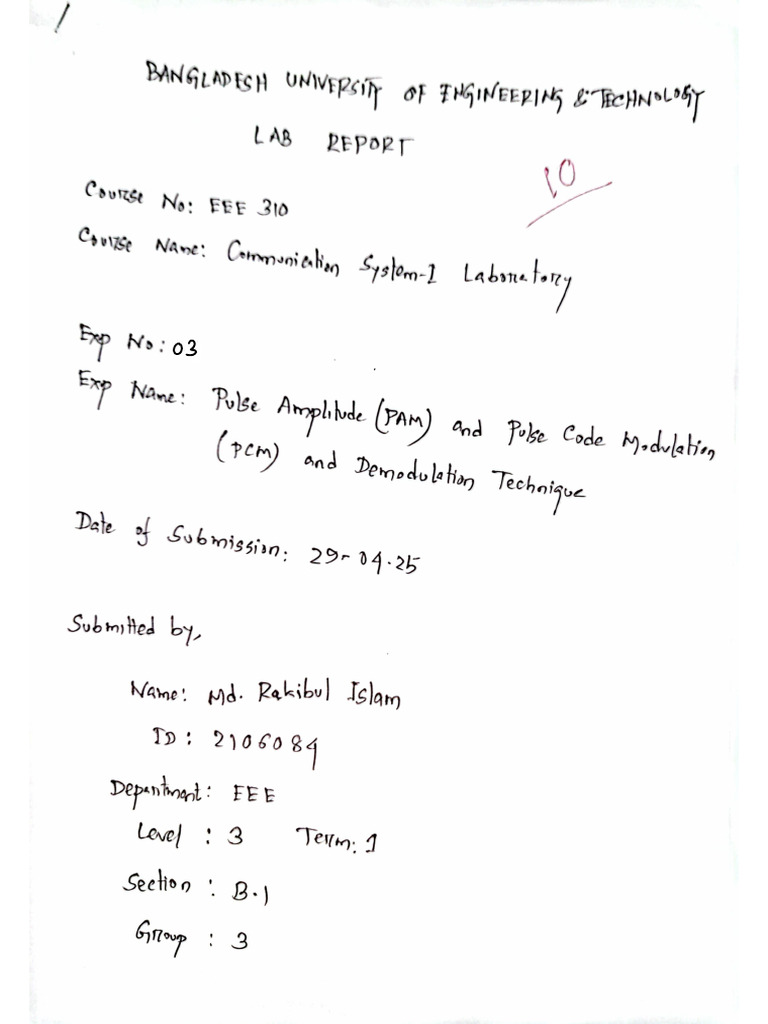 BANGLADESH UNIVERSITY OF ENGINEERING & TECHNOLOGY
LAB REPORT
10
Course No: EEE 310
Course Name: Communication System-I Laboratory
Exp No: 03
Exp Name: Pulse Amplitude (PAM) and Pulse Code Modulation
(PCM) and Demodulation Technique
Date of Submission: 29-04.25
Submitted by,
Name: Md. Rakibul Islam
ID: 2106084
Department: EEE
Level : 3 Term: 1
Section : B.1
Group : 3